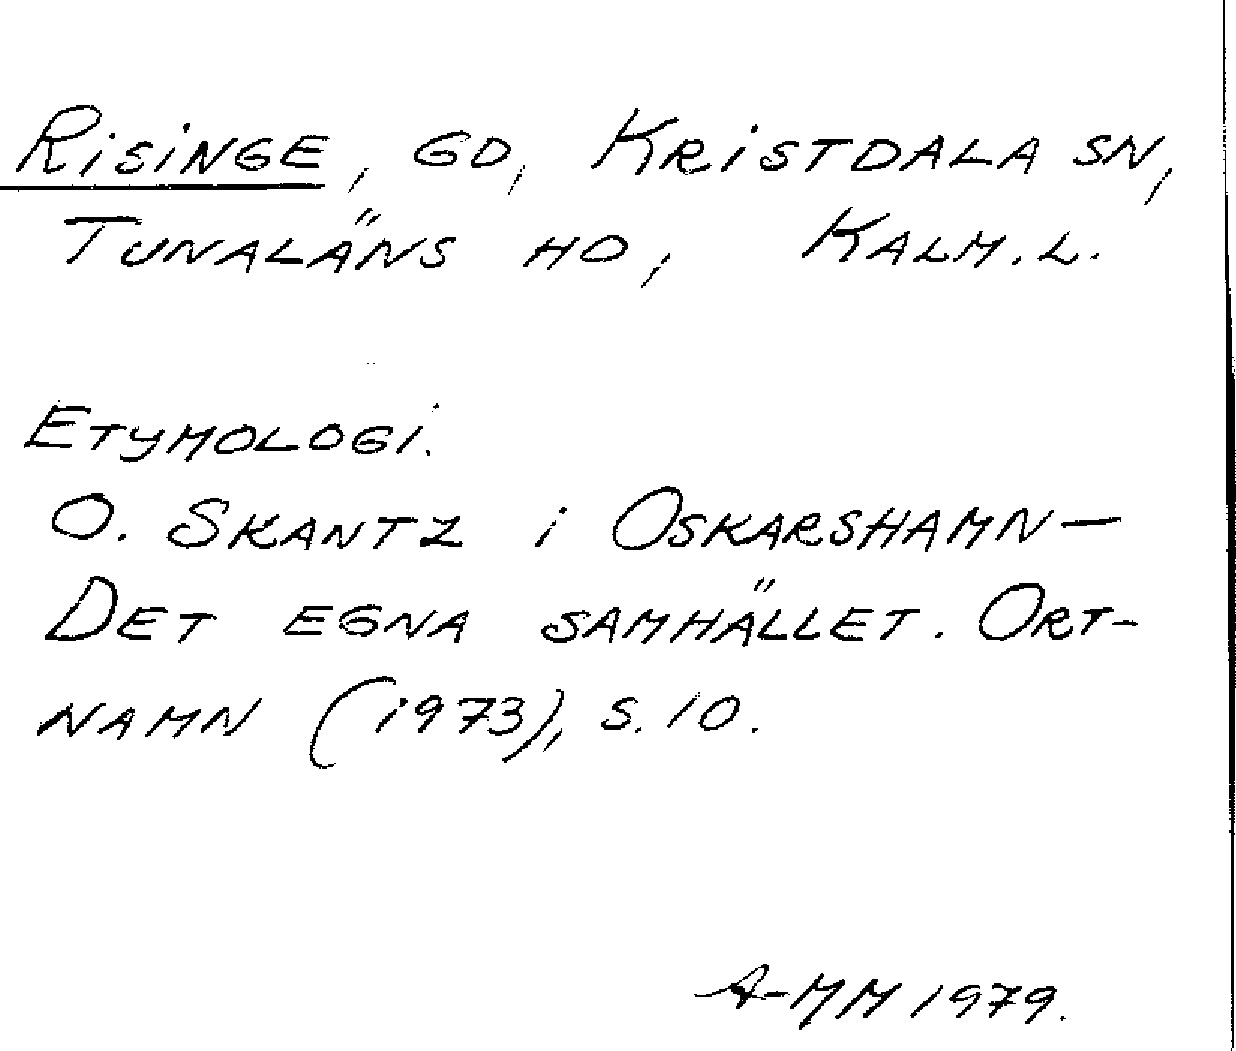 Risinge, gd, Kristdala sn,
Tunaläns hd, Kalm. l.
Etymologi.
O. Skantz i Oskarshamn—
Det egna samhället. Ort-
namn (1973), s. 10.
A-MM 1979.